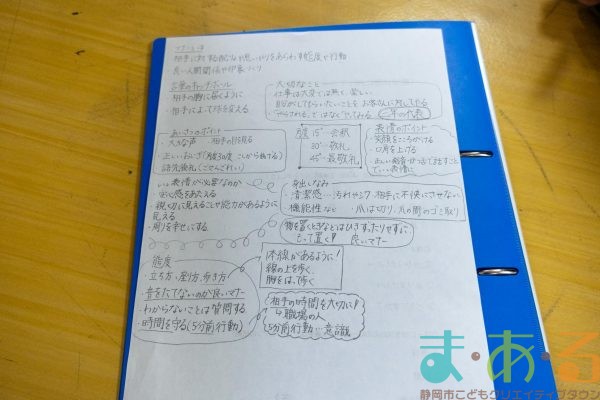 マナーとは
相手に対する配りや思いやりをあらわす態度や行動
良い人間関係や印象づくり
言葉のキャッチボール
・相手の胸に届くように
・相手によって球を変える
・大切なこと
仕事は大変では無く、楽しい
自分がしてもらいたいことをお客さんに対してやる
"やらされる"ではなくやってみる
の代表
あいさつのポイント
・大きな声 ・相手の目を見る
・正しいおじぎ(角度30度 こしから曲げる)
・語先後礼(ごせんごれい)
角度 15°…会釈
30°…敬礼
45°…最敬礼
表情のポイント
・笑顔をこころがける
・口角を上げる
いい表情が必要なのか
・安心感をあたえる
・親切に見えることや能力があるように
見える
・周りを幸せにする
身出しなみ
・清潔感…汚れやシワ、相手に不快にさせない
機能性など ・爪は切り、爪の間のゴミ取り
物を置くときなどはひきずったりせずに
もって置く! 良いマナー
態度
・立ち方、座り方、歩き方
・音をたてないのが良いマナー
・わからないことは質問する
・時間を守る(5分前行動)
1本線があるように!
線の上を歩く、
胸をはって歩く
相手の時間を大切に!
↳職場の人
5分前行動を意識
ま・あ・る
静岡市こどもクリエイティブタウン